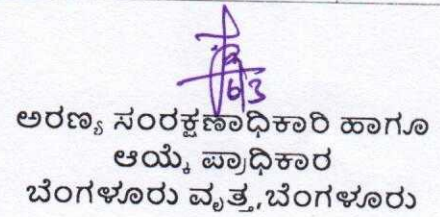 ಅರಣ್ಯ ಸಂರಕ್ಷಣಾಧಿಕಾರಿ ಹಾಗೂ
ಆಯ್ಕೆ ಪ್ರಾಧಿಕಾರ
ಬೆಂಗಳೂರು ವೃತ್ತ,ಬೆಂಗಳೂರು